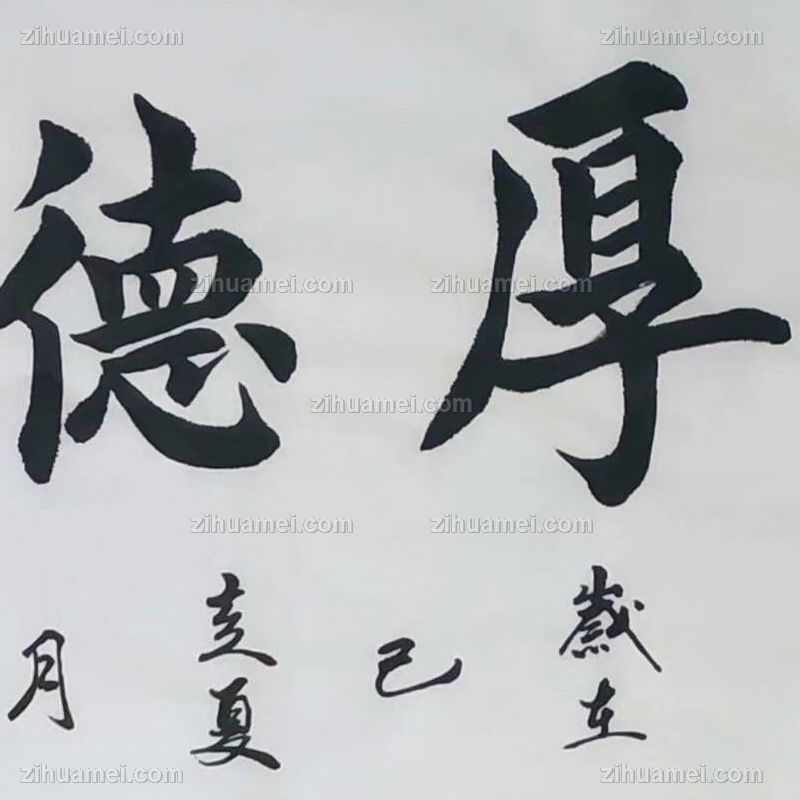 厚德
歲在
己
亥夏
月
zihuamei.com
zihuamei.com
zihuamei.com
zihuamei.com
zihuamei.com
zihuamei.com
zihuamei.com
zihuamei.com
zihuamei.com